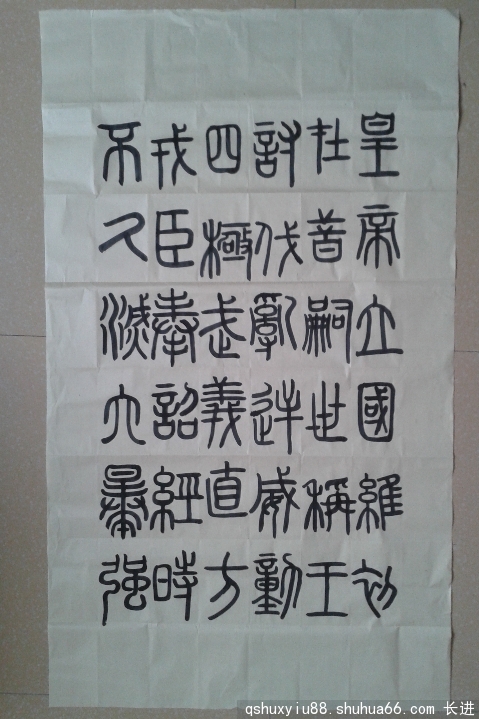 皇帝立國維初
在昔嗣世稱王
討伐亂逆威動
四極武義直方
戎臣奉詔經時
不久滅六暴強
qshuxyiu88.shuhua66.com 长进